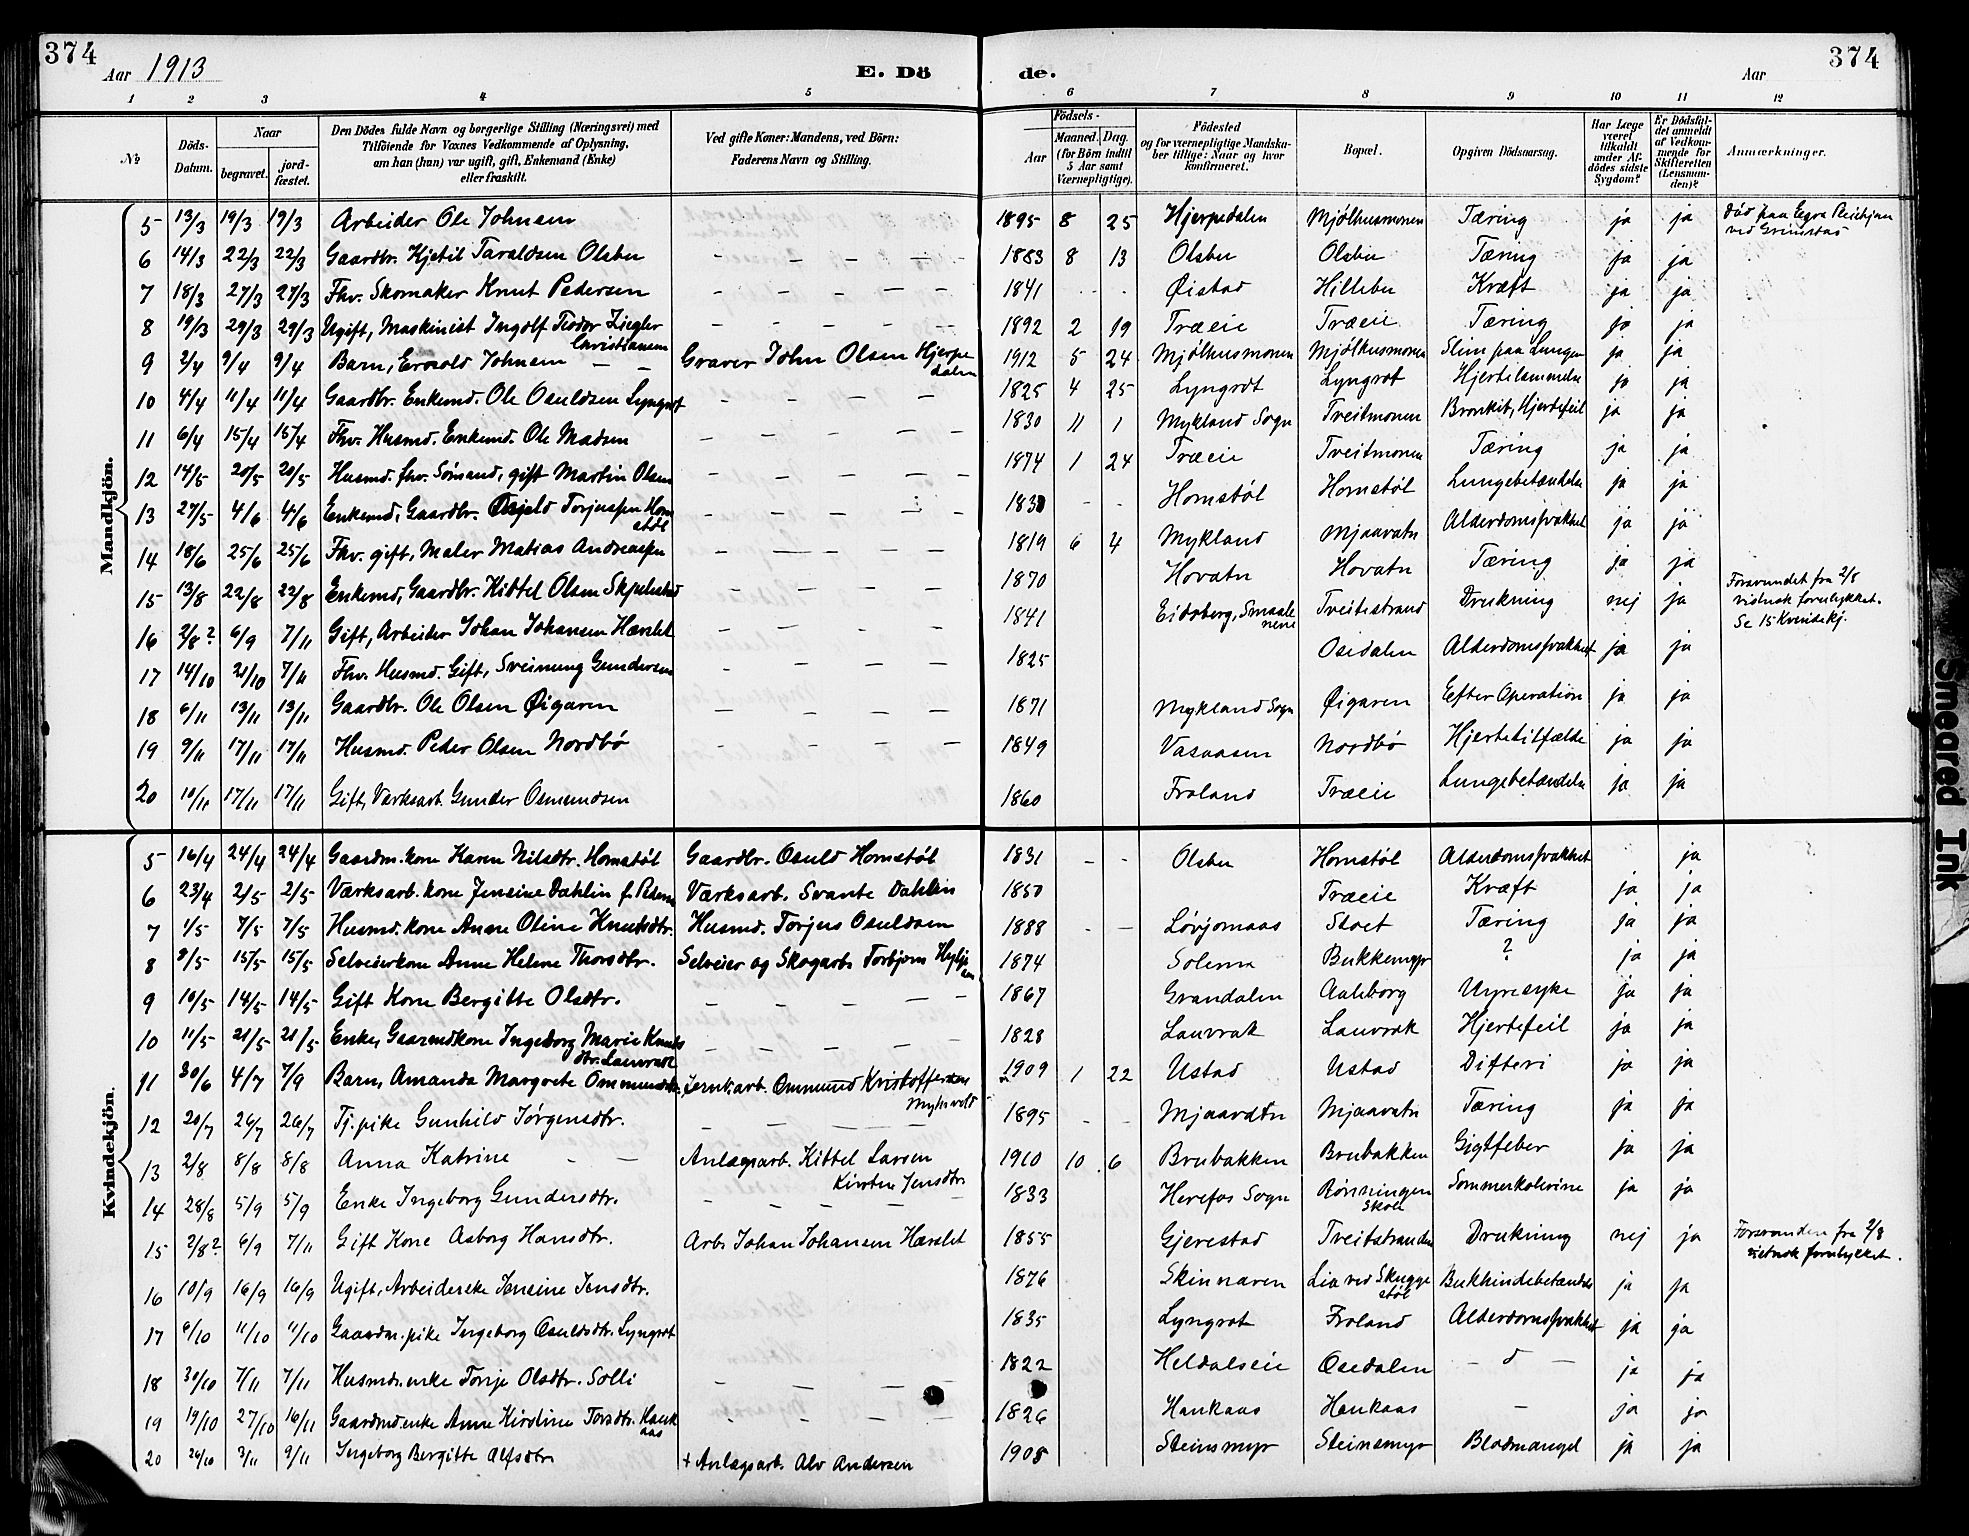 374
Aar 1913
E. Dö
de.
Aar
374
1 2 3 4 5 6 7 8 9 10 11 12
No
Döds-Datum.
Naar
begravet.
jord-fæstet.
Den Dödes fulde Navn og borgerlige Stilling (Næringsvei) med
Tilföiende for Voxnes Vedkommende af Oplysning,
om han (hun) var ugift, gift, Enkemand (Enke)
eller fraskilt.
Ved gifte Koner: Mandens, ved Börn:
Faderens Navn og Stilling.
Födsels-
Aar
Maaned. Dag.
(for Börn indtil
5 Aar samt
Værnepligtige).
Födested
og for værnepligtige Mandska-
ber tillige: Naar og hvor
konfirmeret.
Bopæl.
Opgiven Dödsaarsag.
Har Læge
været
tilkaldt
under Af-
dödes sidste
Sygdom?
Er Dödsfal-
det anmeldt
af Vedkom-
mende for
Skifteretten
(Lensman-
den)?
Anmærkninger.
Mandkjön.
5 13/3 19/3 19/3 Arbeider Ole Johnsen 1895 8 25 Hjerpedalen Mjølhusmonen Tæring ja ja Død paa
ved Grimstad
6 14/3 22/3 22/3 Gaardbr. Kjetil Taraldsen Olsbu – – – – – 1883 8 13 Olsbu Olsbu Tæring ja ja
7 18/3 27/3 27/3 Fhv. Skomaker Knut Pedersen – – – – – 1841 Øistad Hillebu Kræft ja ja
8 19/3 29/3 29/3 Ugift, Maskinist Ingolf Teodor Ziegler
Christiansen – – – – – 1892 2 19 Træeie Træeie Tæring ja ja
9 2/4 9/4 9/4 Barn, Johnsen – – Graver John Olsen Hjerpe
dalen 1912 5 24 Mjølhusmonen Mjølhusmonen Slim paa Lungen ja ja
10 4/4 11/4 11/4 Gaardbr. Enkemd. Ole Osuldsen Lyngrot – – – – 1825 4 25 Lyngrot Lyngrot Hjertelammelse ja ja
11 6/4 15/4 15/4 Fhv. Husmd. Enkemd. Ole Madsen – – – – – 1830 11 1 Mykland Sogn Tveitmonen Bronkit, Hjertefeil ja ja
12 14/5 20/5 20/5 Husmd. fhv. Sømand, gift Martin Olsen – – – – – 1874 1 24 Træeie Tveitmonen Tæring ja ja
13 27/5 4/6 4/6 Enkemd, Gaardbr. Torjussen Hom
støl – – – – 1830 – – Homstøl Homstøl Lungebetændelse ja ja
14 18/6 25/6 25/6 Fhv. gift, Maler Matias Andreassen – – – – – 1819 6 4 Mykland Mjaavatn Alderdomssvakhet ja ja
15 13/8 22/8 22/8 Enkemd, Gaardbr. Kittel Olsen – – – – – 1870 Hovatn Hovatn Tæring ja ja
16 2/8? 6/9 7/11 Gift, Arbeider Johan Johansen Hærslet – – – – – 1841 Eidsberg, Smaale
nene Tveitestrand Drukning nej ja Forsvundet fra 2/8
vistnok forulykket.
Se 15 Kvindekj.
17 14/10 21/10 7/11 Fhv. Husmd. Gift, Sveinung Gundersen – – – – – 1825 Osedalen Alderdomssvakhet ja ja
18 6/11 13/11 13/11 Gaardbr. Ole Olsen Øigaren – – – – – 1871 Mykland Sogn Øigaren Efter Operation ja ja
19 9/11 17/11 17/11 Husmd. Peder Olsen Nordbø – – – – – 1849 Vasaasen Nordbø Hjertetilfælde ja ja
20 10/11 17/11 17/11 Gift, Værksarb. Gunder Osmundsen 1860 Froland Træeie Lungebetændelse ja ja
Kvindekjön.
5 16/4 24/4 24/4 Gaardm.kone Karen Nilsdtr. Homstøl Gaardbr. Osuld Homstøl 1831 – – Olsbu Homstøl Alderdomssvakhet ja
6 23/4 2/5 2/5 Værksarb. kone Jensine Dahlin f. Peders Værksarb. Svante Dahlin 1850 Træeie Kræft ja ja
7 1/5 7/5 7/5 Husmd. kone Anne Oline Knutsdtr. Husmd. Torjus Osuldsen 1888 – – Løvjomaas Stoet Tæring ja ja
8 8/5 15/5 15/5 Selveierkone Anne Helene Thorsdtr. Selveier og Skogarb. Torbjørn 1874 Solemn Bukkemyr ? ja ja
9 10/5 14/5 14/5 Gift Kone Bergitte Olsdtr. – – – – – 1867 Grandalen Aaleborg Nyresyke ja ja
10 11/5 21/5 21/5 Enke, Gaardmdkone Ingeborg Marie Knuts
dtr. Lauvrak – – – – – 1828 Lauvrak Lauvrak Hjertefeil ja ja
11 30/6 4/7 7/9 Barn, Amanda Margrete Ommundsdtr. Jernb.arb. Ommund Kristoffersen
Myhrvold 1909 1 22 Ustad Ustad Difteri ja ja
12 20/7 26/7 26/7 Tj. pike Gunhild Jørgensdtr. – – – – – 1895 – – Mjaavatn Mjaavatn Tæring ja ja
13 2/8 8/8 8/8 Anna Katrine – – Anlægsarb. Kittel Larsen
Kirstine Jensdtr. 1910 10 6 Brubakken Brubakken Gigtfeber ja ja
14 28/8 5/9 5/9 Enke Ingeborg Gundersdtr. – – – – – 1833 Herefos Sogn Rønningen
Skole Sommerkolerine ja ja
15 2/8? 6/9 7/11 Gift Kone Aasborg Hansdtr. Arb. Johan Johansen Hærslet 1855 Gjerestad Tveitstranden Drukning nej ja Forsvunden fra 2/8
vistnok forulykket.
16 10/9 16/9 16/9 Ugift, Arbeiderske Jensine Jensdtr. 1876 Skinnaren Lia ved Skugge
støl Bukhindebetændelse ja ja
17 6/10 11/10 11/10 Gaardm. pike Ingeborg Osuldsdtr. Lyngrot 1835 Lyngrot Froland Alderdomssvakhet ja ja
18 30/10 7/11 7/11 Husmds.enke Torje Olsdtr. Solli – – – – – 1822 Heldalseie Osedalen – d – ja ja
19 19/10 27/10 16/11 Gaardmd.enke Anne Kirstine Torsdtr. Hauk
aas – – – – – 1826 Haukaas Haukaas – ja ja
20 26/10 3/11 9/11 Ingeborg Bergitte Alfsdtr. + Anlægsarb. Alv Andersen 1908 Steinsmyr Steinsmyr Blodmangel ja ja
Smeared Ink